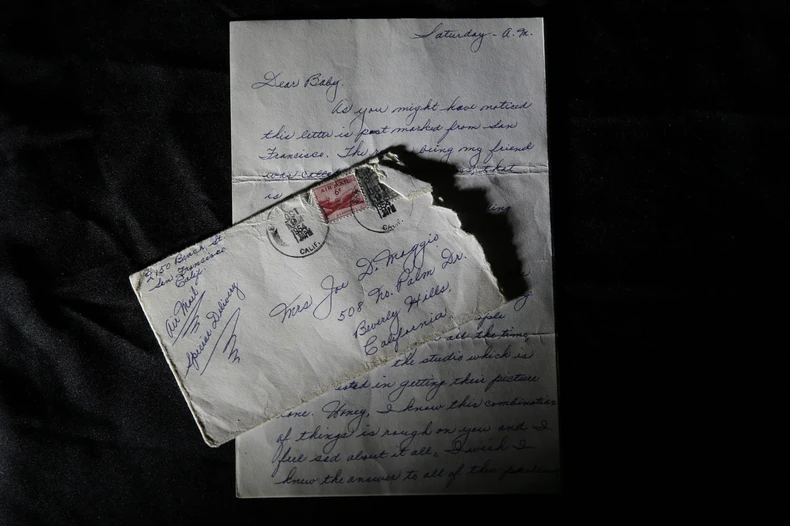 Saturday - A.M.
Dear Baby,
As you might have noticed
this letter is post marked from San
Francisco. The being my friend
was that
is
ing
all the time,
the studio which is
in getting their picture
one. Honey, I know this combination
of things is rough on you and I
feel sad about it all. I wish I
knew the answer to all of the
AIR MAIL
6¢
OCT
1954
CALIF.
1954
CALIF.
2150 Beach St.
San Francisco
Calif.
Air Mail
Special Delivery
Mrs Joe D. Maggio
508 No. Palm Dr.
Beverly Hills,
California